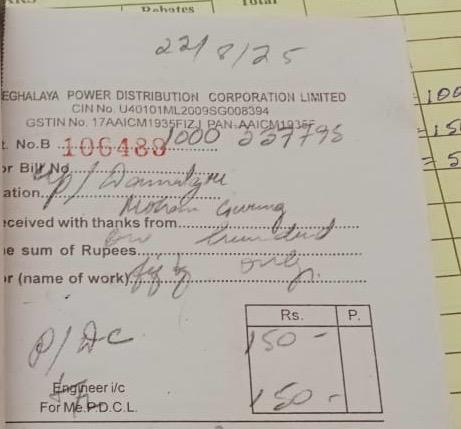 Rebates
Total
22/8/25
EGHALAYA POWER DISTRIBUTION CORPORATION LIMITED
CIN No. U40101ML2009SG008394
GSTIN No. 17AAICM1935FIZJ PAN-AAICM1935F
t. No.B 106488/1000 227795
or Bill No
ation
Mohan Gurung
eceived with thanks from
hundred
e sum of Rupees
fifty only
or (name of work)
Rs. P.
P/DC 150 -
Engineer i/c
150 -
For Me.P.D.C.L.
100
150
= 5